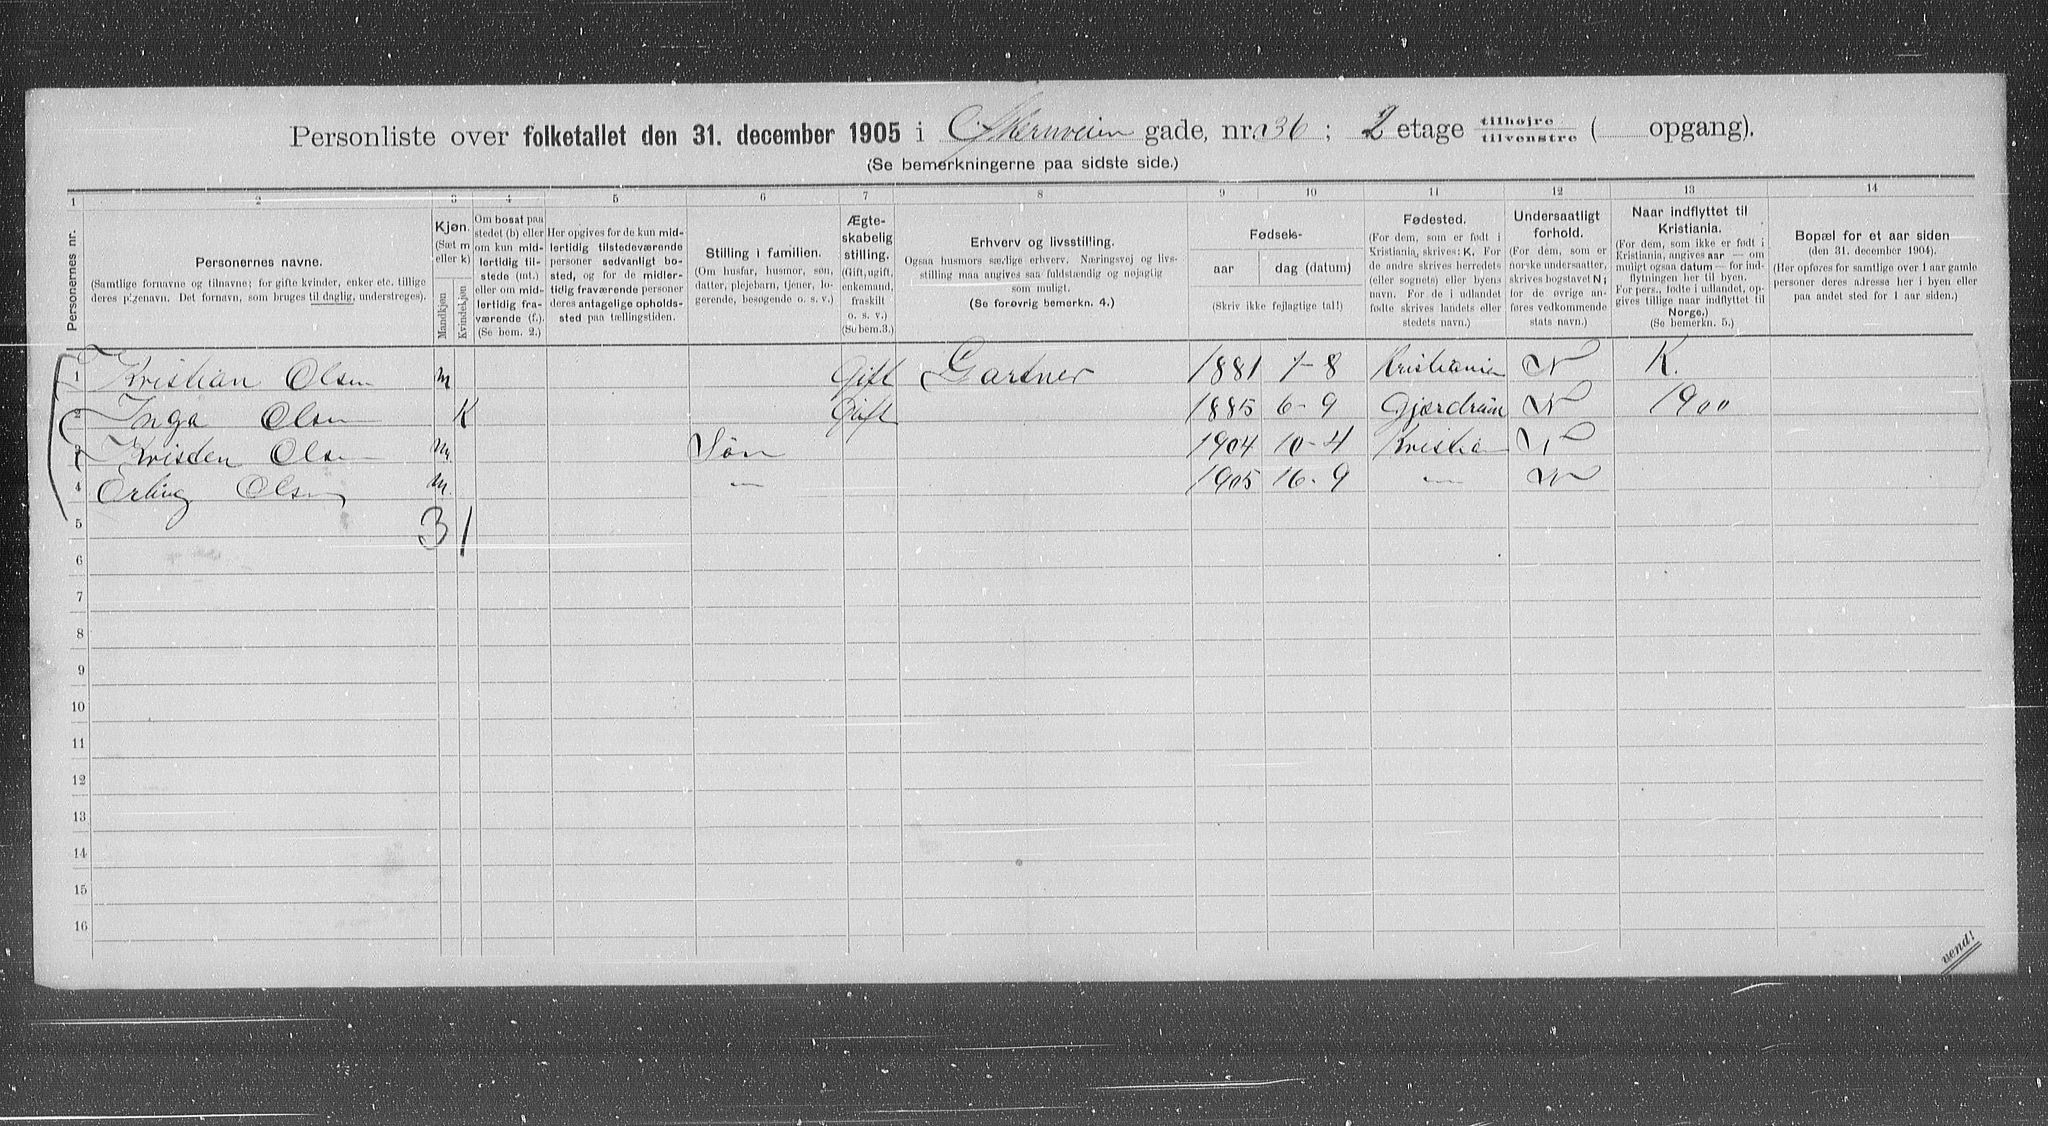 Personliste over folketallet den 31. december 1905 i gade, nr. 36 ; 2 etage tilhøjre tilvenstre ( opgang).
(Se bemerkningerne paa sidste side.)
1 2 3 4 5 6 7 8 9 10 11 12 13 14
Personernes nr.
Personernes navne.
(Samtlige fornavne og tilnavne; for gifte kvinder, enker etc. tillige
deres pigenavn. Det fornavn, som bruges til daglig, understreges).
Kjøn.
(Sæt m
eller k)
Mandkjøn
Kvindekjøn
Om bosat paa
stedet (b) eller
om kun mid-
lertidig til-
stede (mt.)
eller om mid-
lertidig fra-
værende (f.).
(Se bem. 2.)
Her opgives for de kun mid-
lertidig tilstedeværende
personer sedvanligt bo-
sted, og for de midler-
tidig fraværende personer
deres antagelige opholds-
sted paa tællingstiden.
Stilling i familien.
(Om husfar, husmor, søn,
datter, plejebarn, tjener, lo-
gerende, besøgende o. s. v.)
Ægte-
skabelig
stilling.
(Gift, ugift,
enkemand,
fraskilt
o. s. v.)
(Se bem. 3.)
Erhverv og livsstilling.
Ogsaa husmors særlige erhverv. Næringsvej og livs-
stilling maa angives saa fuldstændig og nøjagtig
som muligt.
(Se forøvrig bemerkn. 4.)
Fødsels-
aar
dag (datum)
(Skriv ikke fejlagtige tal!)
Fødested.
(For dem, som er født i
Kristiania, skrives: K. For
de andre skrives herredets
(eller sognets) eller byens
navn. For de i udlandet
fødte skrives landets eller
stedets navn.)
Undersaatligt
forhold.
(For dem, som er
norske undersaatter,
skrives bogstavet N;
for de øvrige an-
føres vedkommende
stats navn.)
Naar indflyttet til
Kristiania.
(For dem, som ikke er født i
Kristiania, angives aar — om
muligt ogsaa datum — for ind-
flytningen her til byen.
For pers., fødte i udlandet, op-
gives tillige naar indflyttet til
Norge.)
(Se bemerkn. 5.)
Bopæl for et aar siden
(den 31. december 1904).
(Her opføres for samtlige over 1 aar gamle
personer deres adresse her i byen eller
paa andet sted for 1 aar siden.)
1 Kristian Olsen m Gift Gartner 1881 1-8 Kristiania N K.
2 Inga Olsen K Gift 1885 6-9 Gjerdrum N 1900
3 Kristen Olsen m. Søn 1904 10-4 Kristia N
4 Erling Olsen m. — 1905 16-9 — N
5 3 1
6
7
8
9
10
11
12
13
14
15
16
vend!